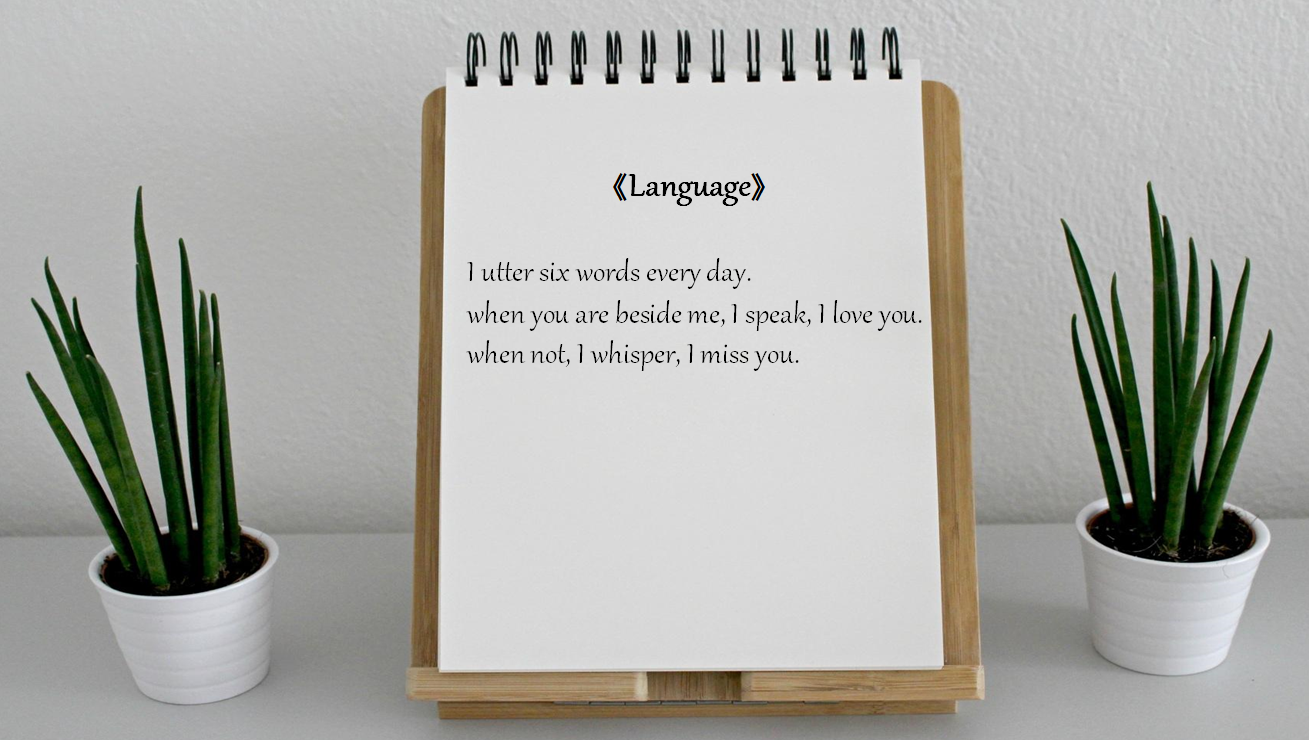 《Language》
I utter six words every day.
when you are beside me, I speak, I love you.
when not, I whisper, I miss you.